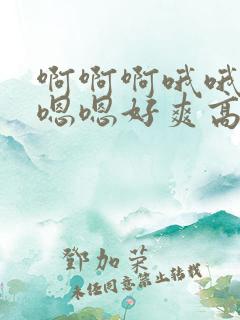 啊啊啊哦哦
嗯嗯好爽高
鄧加荣
未经同意禁止转载